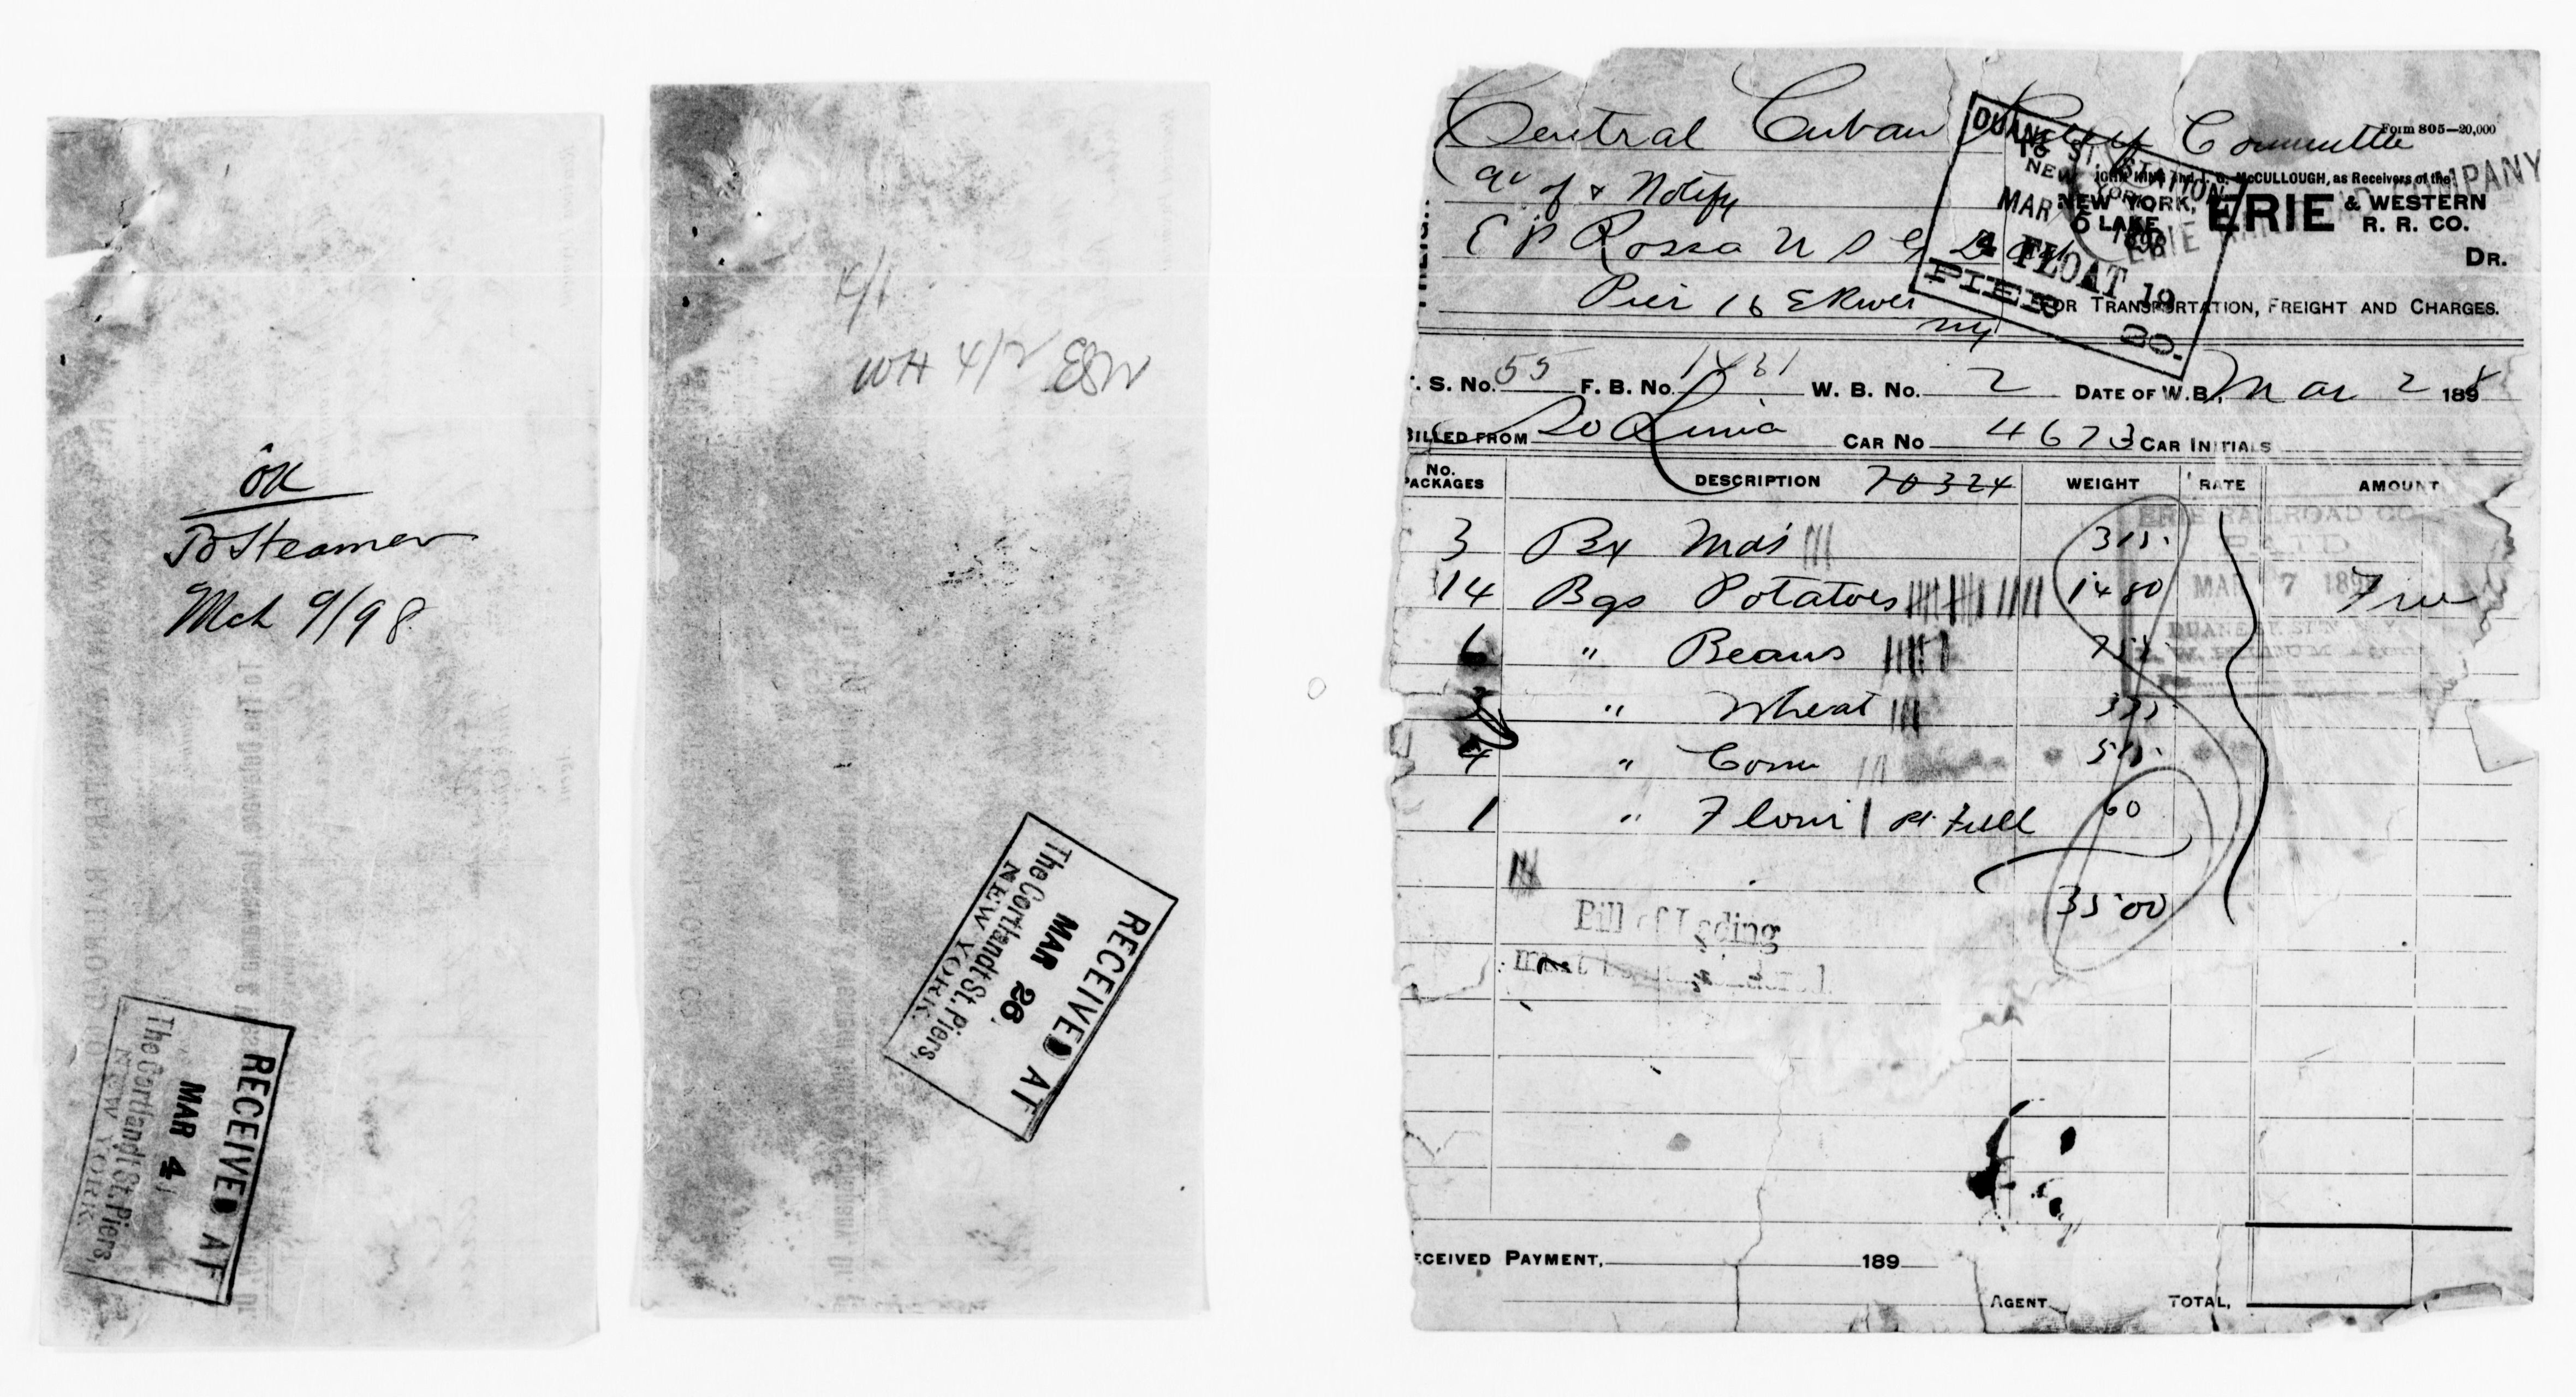 OK
To Steamer
Mch 9/98
RECEIVED AT
MAR 4
The Cortlandt St. Piers,
NEW YORK.
4/1
WH 4/2
RECEIVED AT
MAR 26,
The Cortlandt St. Piers,
NEW YORK.
Form 805—20,000
Central Cuban Relief Committee
a/c of & Notify
McCULLOUGH, as Receivers of the
NEW YORK, LAKE ERIE & WESTERN R. R. CO.
E P Rossa U S G
DR.
Pier 16 E River
NY
FOR TRANSPORTATION, FREIGHT AND CHARGES.
DUANE ST. STATION
NEW YORK
MAR 1898
FLOAT 19
PIER 20.
ERIE COMPANY
. S. No. 55 F. B. No. 1431 W. B. No. 2 DATE OF W.B., Mar 2 1898
BILLED FROM So Lima CAR No 4673 CAR INITIALS
No. PACKAGES DESCRIPTION 70324 WEIGHT RATE AMOUNT
ERIE RAILROAD CO
PAID
MAR 7 189
3 Bx Mds 315
14 Bgs Potatoes 1480 Free
6 " Beans
3 " Wheat
4 " Corn
1 " Flour pt full 60
3500
Bill of Lading
must be
ECEIVED PAYMENT, 189
AGENT TOTAL,